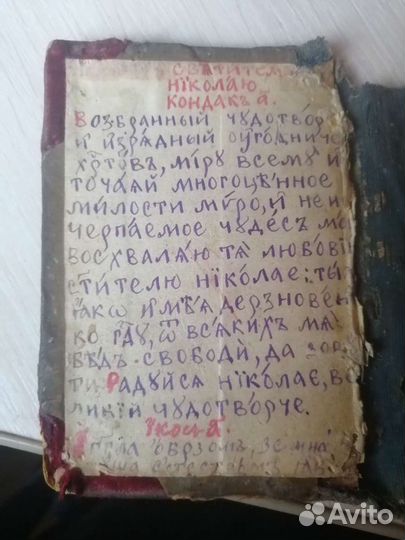 СВ҃ТИТЕЛ
НІКОЛАЮ
КОНДАКЪ а҃.
Возбранный чудотвор
и изрѧдный оугодниче
хрⷭ҇товъ, міру всему и
точаѧй многоцѣнное
милости мѵро, и неи
черпаемое чудесъ мо
восхвалѧю тѧ любовію
ст҃ителю ніколае: ты
ꙗкѡ имѣѧ дерзновен
ко гдⷭ҇у, ѿ всѧкихъ мѧ
бѣдъ свободи, да зов
ти Радуйсѧ ніколае, ве
ликій чудотворче.
Ікосъ а҃.
образомъ, земна
естествомъ
Avito